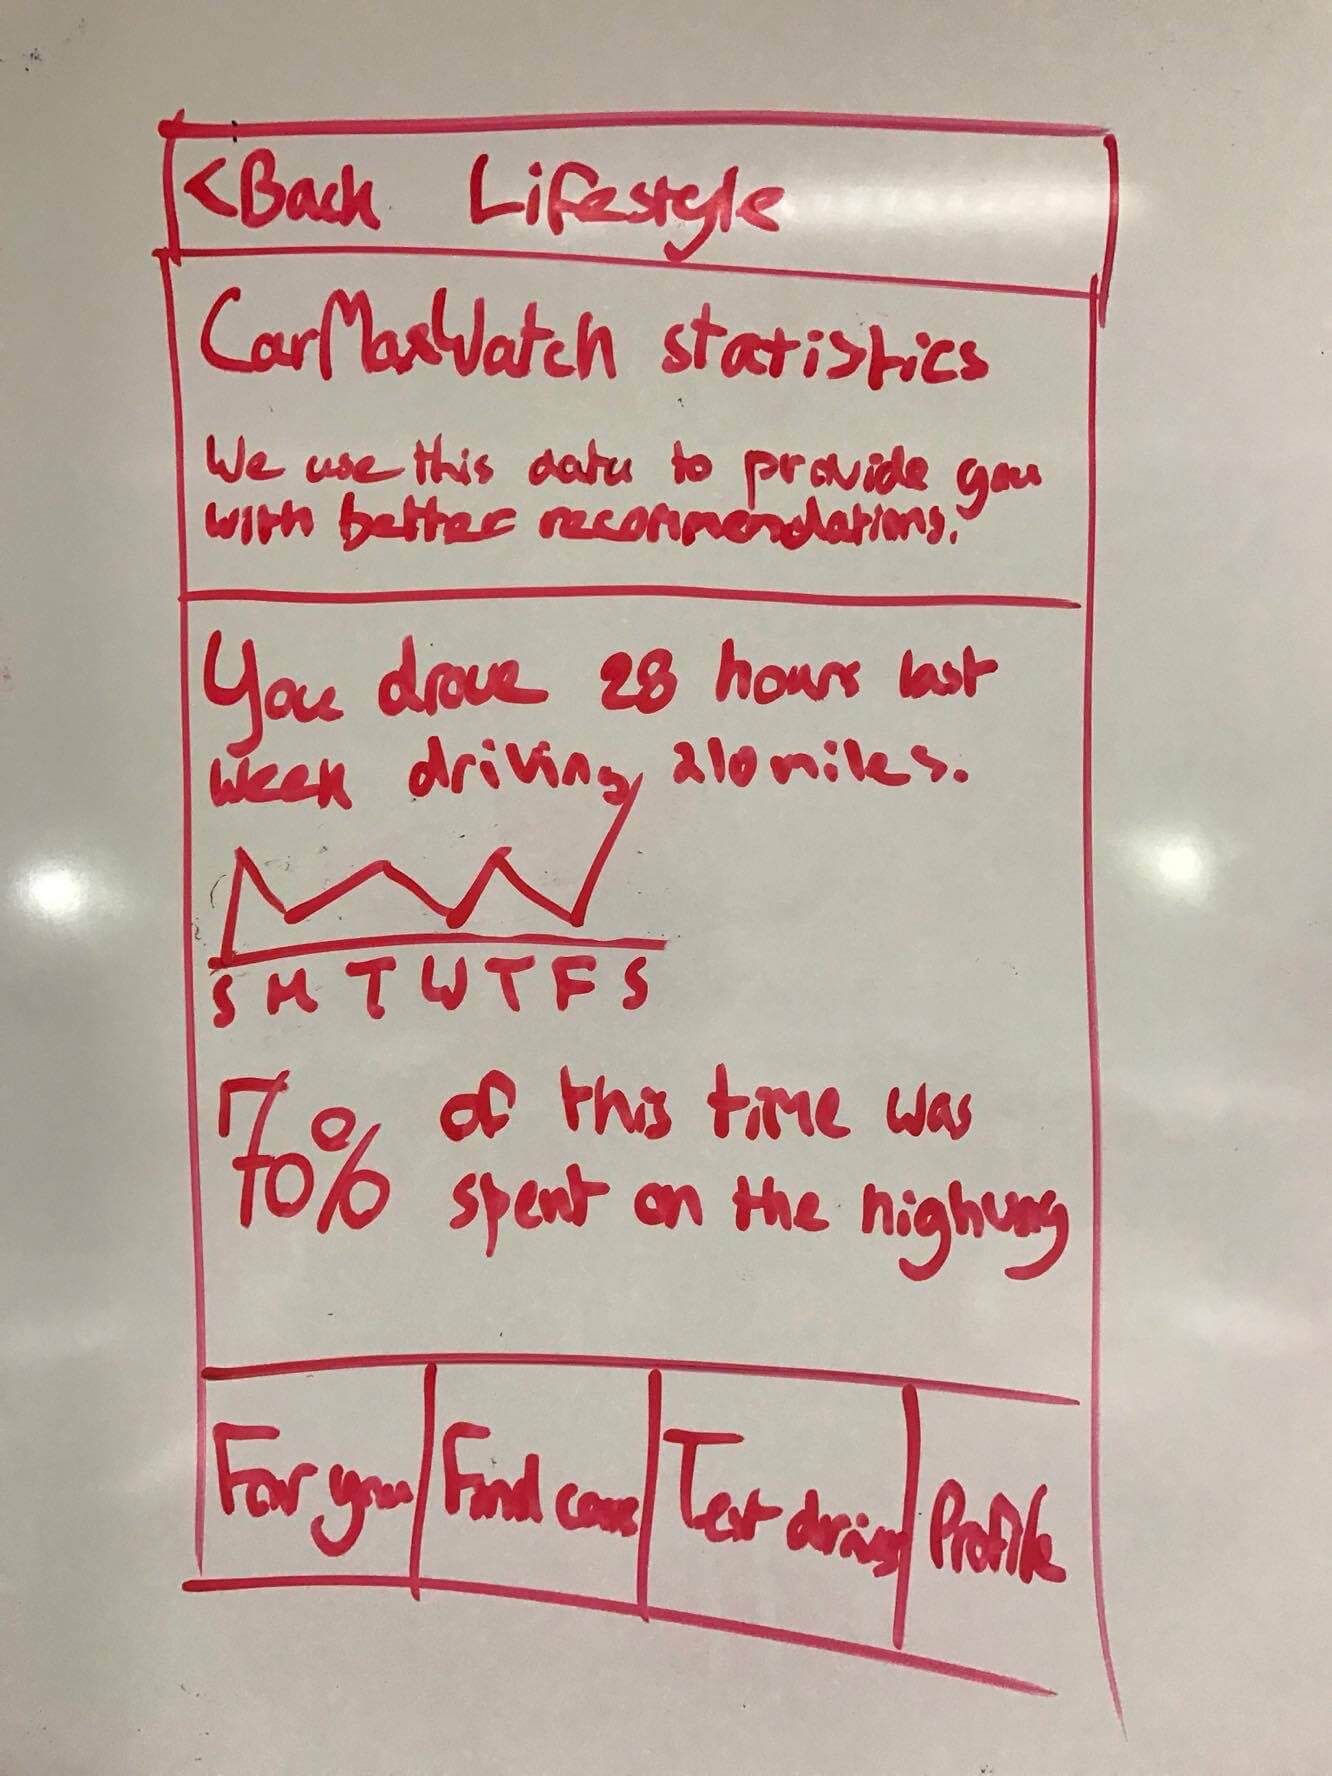 <Back Lifestyle
CarMaxWatch statistics
We use this data to provide you
with better recommendations.
You drove 28 hours last
week driving 210 miles.
S M T W T F S
70% of this time was
spent on the highway
For you Find cars Test drives Profile